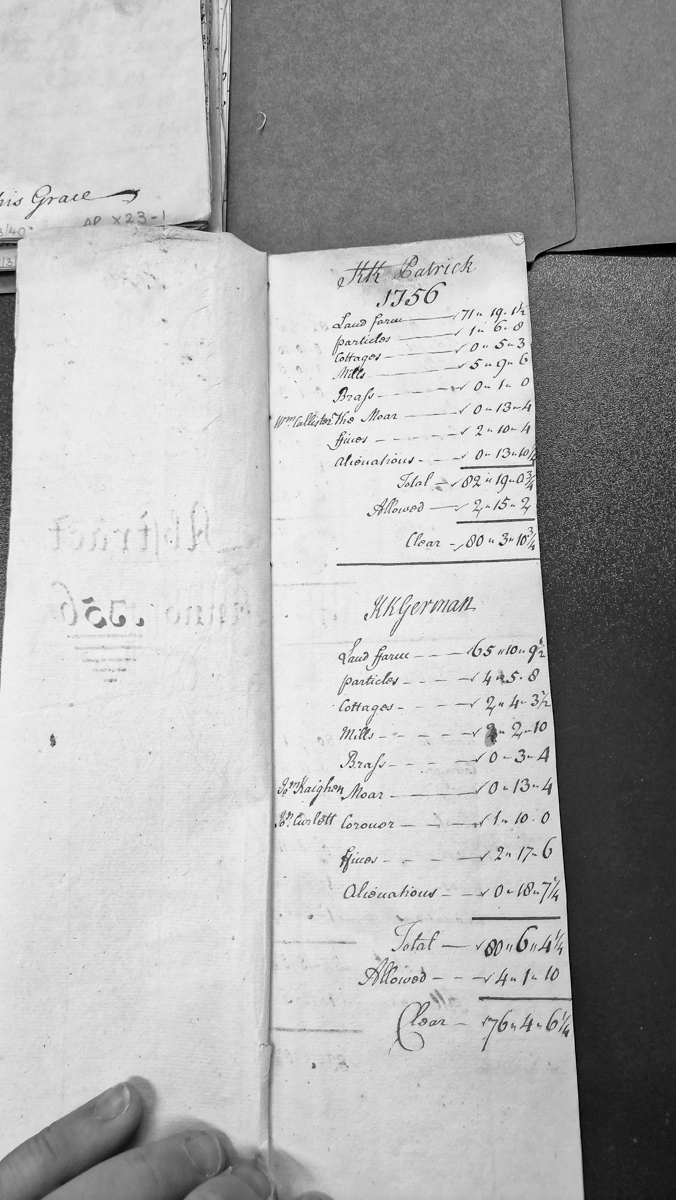 his Grace
AP X23-1
KK Patrick
1756
Land farm 71" 19" 1½
particles 1" 6" 8
Cottages 0" 5" 3
Mills 5" 9" 6
Brass 0" 1" 0
Wm Callister The Moar 0" 13" 4
ffines 2" 10" 4
Alienations 0" 13" 10¼
Total 82" 19" 0¾
Allowed 2" 15" 2
Clear 80" 3" 10¾
KK German
Land ffarm 65" 10" 9½
particles 4" 5" 8
Cottages 2" 4" 3½
Mills 2" 2" 10
Brass 0" 3" 4
Jon Kaighen Moar 0" 13" 4
Jon Curlett Coronor 1" 10" 0
ffines 2" 17" 6
Alienations 0" 18" 7¼
Total 80" 6" 4¼
Allowed 4" 1" 10
Clear 76" 4" 6¼